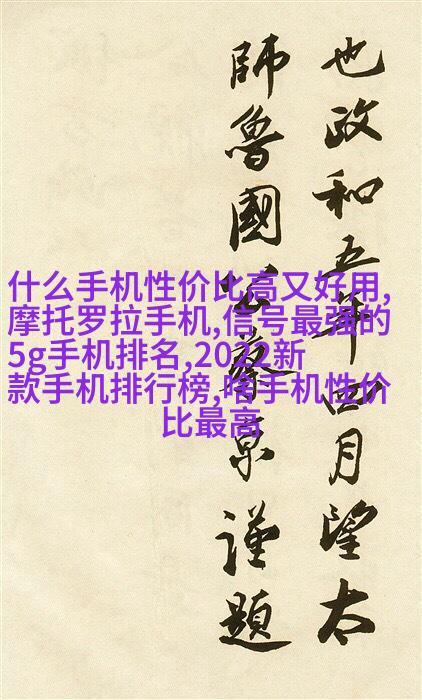 也政和五年四月望太
師魯國公蔡京謹題
什么手机性价比高又好用,
摩托罗拉手机,信号最强的
5g手机排名,2022新
款手机排行榜,啥手机性价
比最高